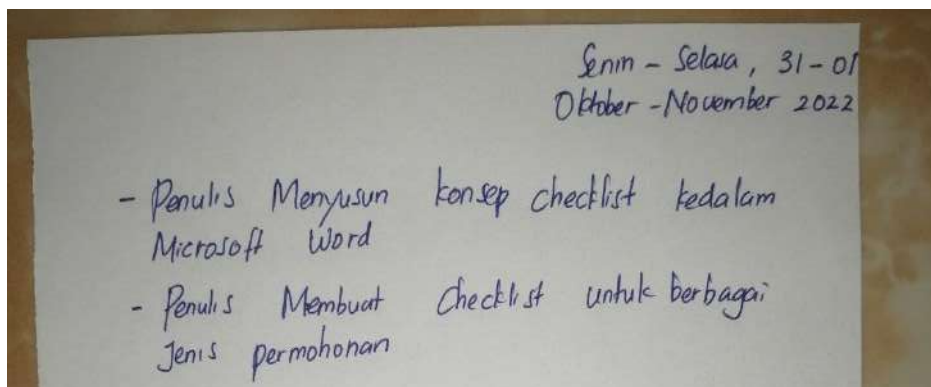 Senin - Selasa, 31-01
Oktober - November 2022
- Penulis Menyusun konsep checklist kedalam
Microsoft Word
- Penulis Membuat Checklist untuk berbagai
Jenis permohonan